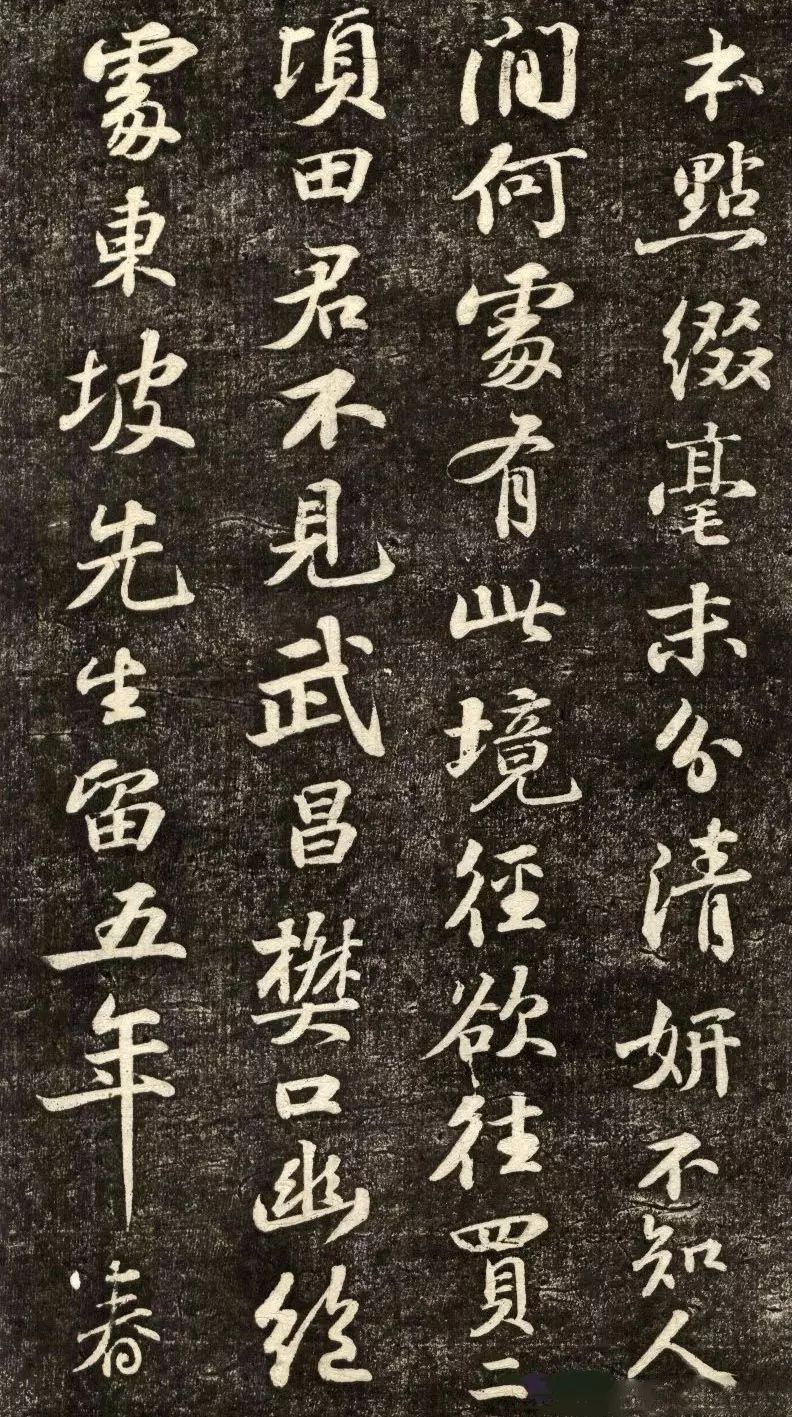 本點綴毫末分清妍不知人
間何處有此境徑欲往買二
頃田君不見武昌樊口幽絕
處東坡先生留五年春